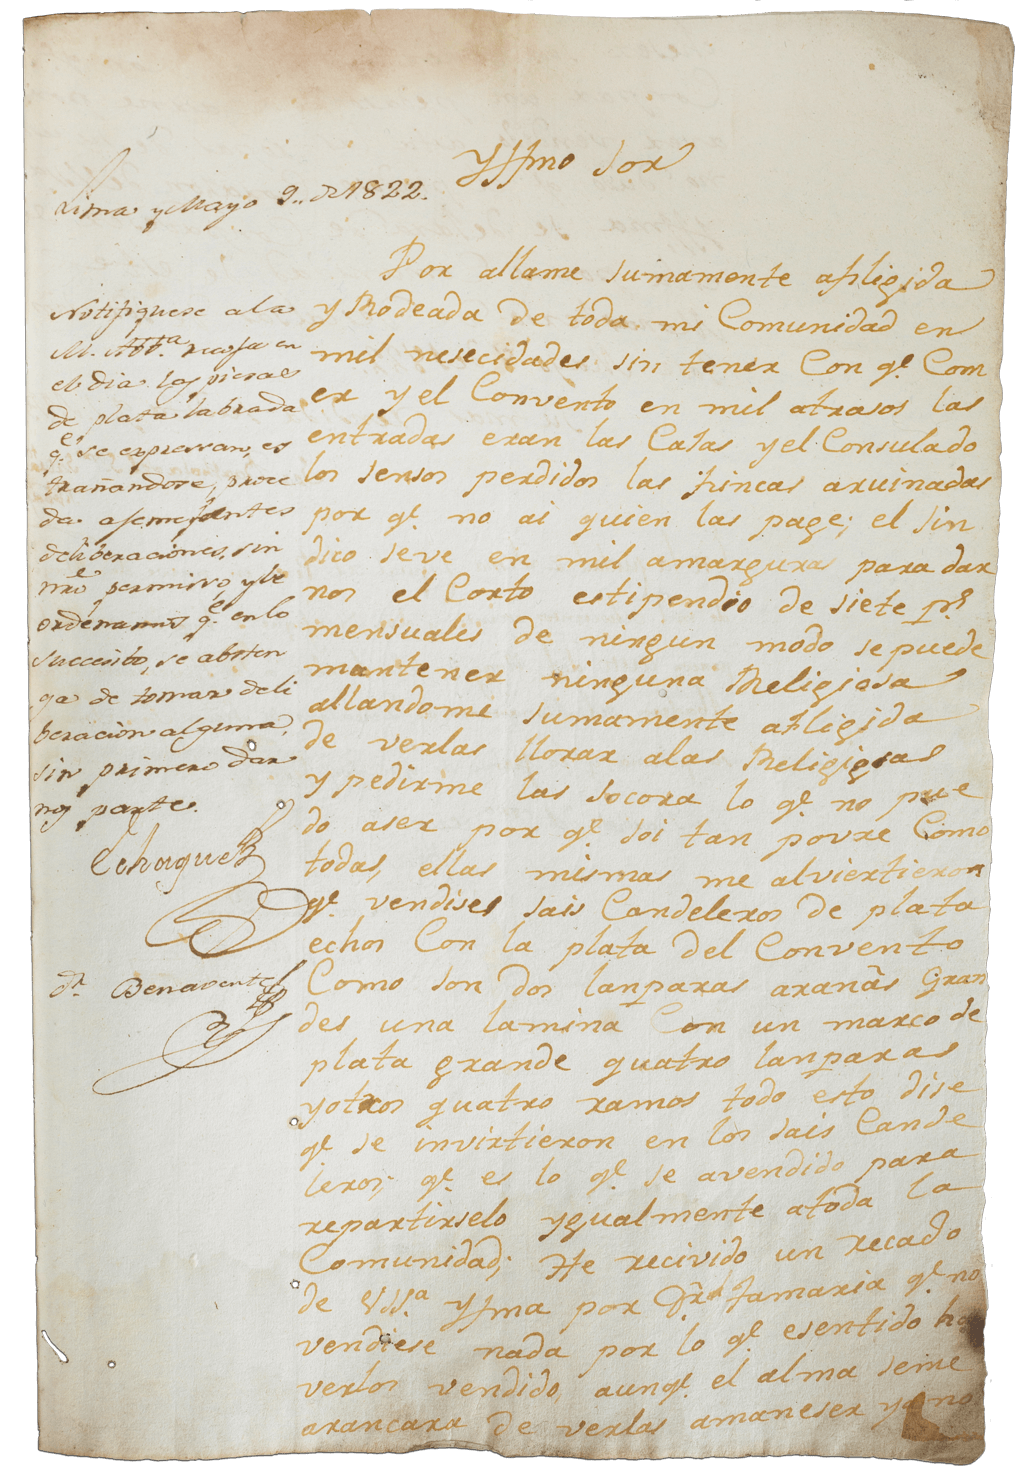 Yllmo Sor
Lima y Mayo 9.. de 1822.
Notifiquese a la
M. Abb.ª recoja en
el dia las piesas
de plata labrada
q.e se expressan, es
trañandose, proce
da a semejantes
deliberaciones, sin
nr̃o permiso, y le
ordenamos q.e en lo
succesibo, se absten
ga de tomar deli
beración alguna,
sin primero dar
nos parte.
Echague
dr. Benavente
Por allame sumamente afligida
y Rodeada de toda mi Comunidad en
mil nesecidades sin tener Con q.e Com
er y el Convento en mil atrasos las
entradas eran las Casas y el Consulado
los sensos perdidos las fincas aruinadas
por q.e no ai quien las page; el Sin
dico seve en mil amarguras para dar
nos el Corto estipendio de siete p.s
mensuales de ningun modo se puede
mantener ninguna Religiosa
allandome sumamente afligida
de verlas llorar alas Religiosas
y pedirme las socora lo q.e no pue
do aser por q.e soi tan povre Como
todas, ellas mismas me alviertieron
q.e vendises sais Candeleros de plata
echos Con la plata del Convento
Como son dos lanparas arañas Gran
des una lamina Con un marco de
plata grande quatro lanparas
y otros quatro ramos todo esto dise
q.e se invirtieron en los sais Cande
leros; q.e es lo q.e se avendido para
repartirselo ygualmente atoda la
Comunidad; He recivido un recado
de VSS.ª Yllma por Santamaria q.e no
vendiese nada por lo q.e esentido ha
verlos vendido, aunq.e el alma seme
arancara de verlas amaneser ya no